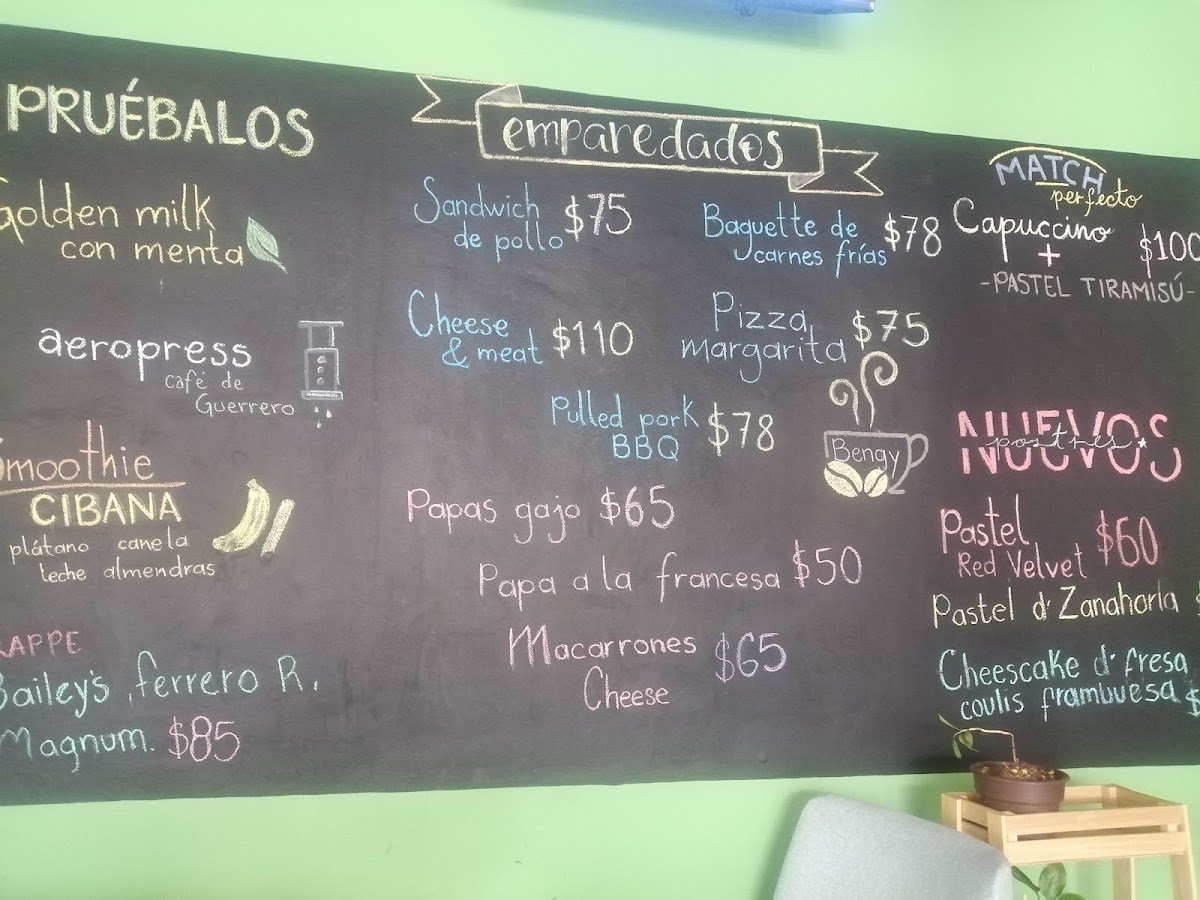 PRUÉBALOS
Golden milk
con menta
aeropress
café de
Guerrero
Smoothie
CIBANA
plátano canela
leche almendras
RAPPE
Bailey's, ferrero R.
Magnum. $85
emparedados
Sandwich
de pollo $75
Baguette de
carnes frías $78
Cheese
& meat $110
Pizza
margarita $75
Pulled pork
BBQ $78
Bengy
Papas gajo $65
Papa a la francesa $50
Macarrones
Cheese $65
MATCH
perfecto
Capuccino
+ $100
-PASTEL TIRAMISÚ-
NUEVOS
postres
Pastel
Red Velvet $60
Pastel d' Zanahoria $
Cheescake d' fresa
coulis frambuesa $